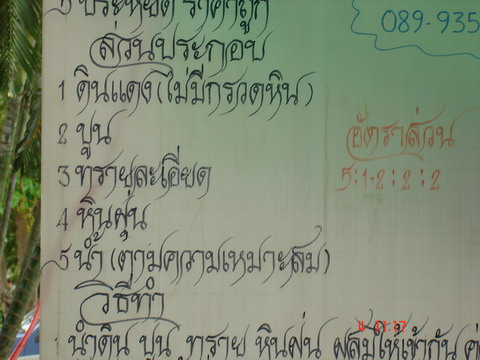 ประหยัด ราคาถูก
089-935
ส่วนประกอบ
1 ดินแดง (ไม่มีกรวดหิน)
2 ปูน
3 ทรายละเอียด
4 หินฝุ่น
5 น้ำ (ตามความเหมาะสม)
อัตราส่วน
5:1-2:2:2
วิธีทำ
1 นำดิน ปูน ทราย หินฝุ่น ผสมให้เข้ากัน